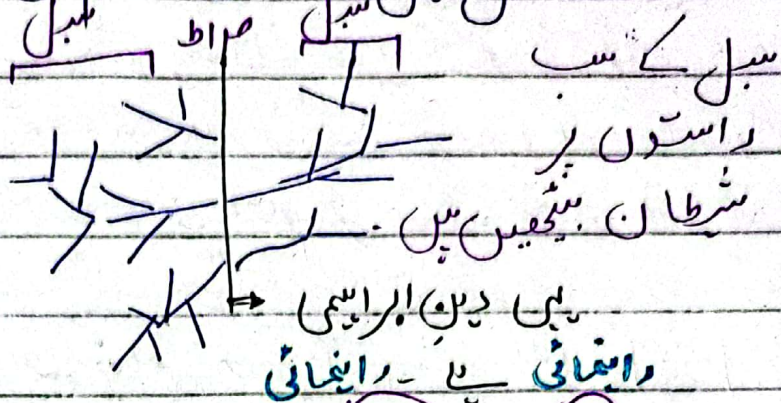 سبل صراط سبل
سبل کے سب
راستوں پر
شیطان بیٹھیں ہیں۔
یہی دینِ ابراہیمی
راہنمائی ہے۔ راہنمائی